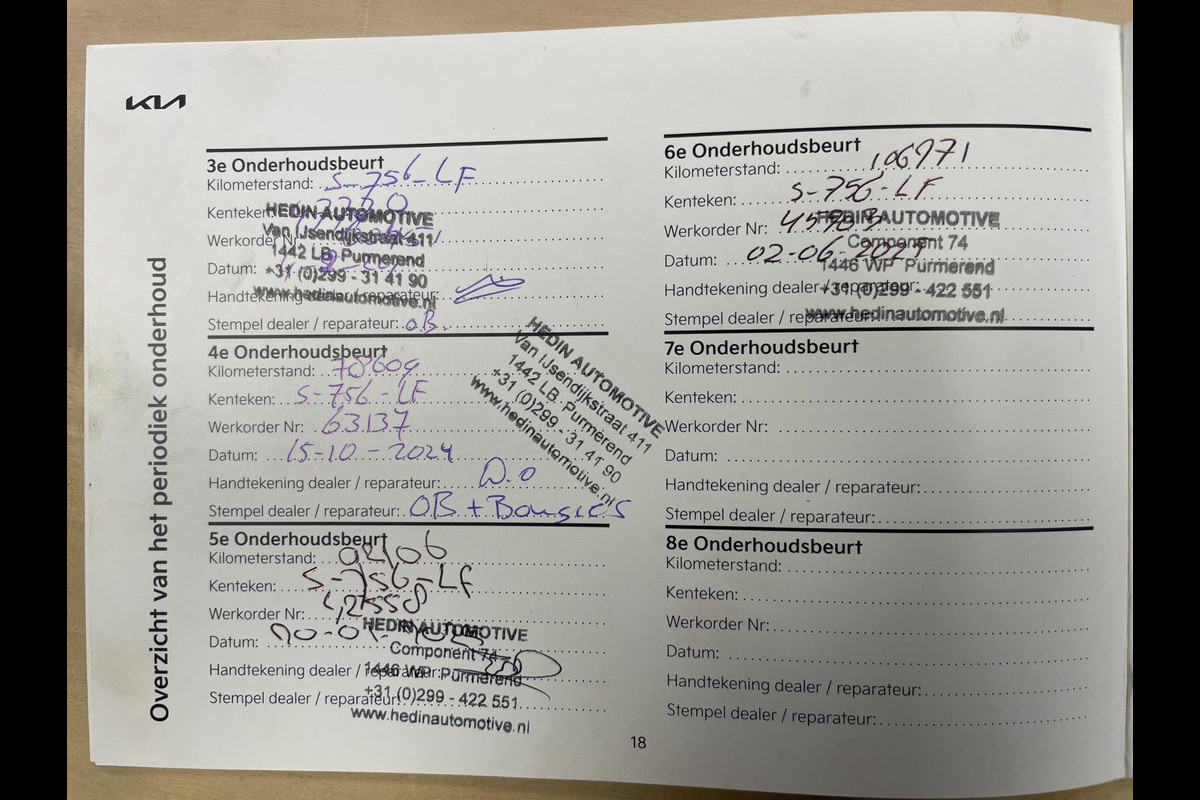 KIA
Overzicht van het periodiek onderhoud
3e Onderhoudsbeurt
Kilometerstand: S-756-LF
Kenteken:
Werkorder Nr:
Datum:
Handtekening dealer / reparateur:
Stempel dealer / reparateur: O.B.
HEDIN AUTOMOTIVE
Van IJsendijkstraat 411
1442 LB Purmerend
+31 (0)299 - 31 41 90
www.hedinautomotive.nl
4e Onderhoudsbeurt
Kilometerstand: 78609
Kenteken: S-756-LF
Werkorder Nr: 63137
Datum: 15-10-2024
Handtekening dealer / reparateur:
Stempel dealer / reparateur: OB + Bougie's
HEDIN AUTOMOTIVE
Van IJsendijkstraat 411
1442 LB Purmerend
+31 (0)299 - 31 41 90
www.hedinautomotive.nl
5e Onderhoudsbeurt
Kilometerstand:
Kenteken: S-756-LF
Werkorder Nr: 42558
Datum:
Handtekening dealer / reparateur:
Stempel dealer / reparateur:
HEDIN AUTOMOTIVE
Component 74
1446 WP Purmerend
+31 (0)299 - 422 551
www.hedinautomotive.nl
6e Onderhoudsbeurt
Kilometerstand: 106971
Kenteken: S-756-LF
Werkorder Nr:
Datum: 02-06-2025
Handtekening dealer / reparateur:
Stempel dealer / reparateur:
HEDIN AUTOMOTIVE
Component 74
1446 WP Purmerend
+31 (0)299 - 422 551
www.hedinautomotive.nl
7e Onderhoudsbeurt
Kilometerstand:
Kenteken:
Werkorder Nr:
Datum:
Handtekening dealer / reparateur:
Stempel dealer / reparateur:
8e Onderhoudsbeurt
Kilometerstand:
Kenteken:
Werkorder Nr:
Datum:
Handtekening dealer / reparateur:
Stempel dealer / reparateur:
18